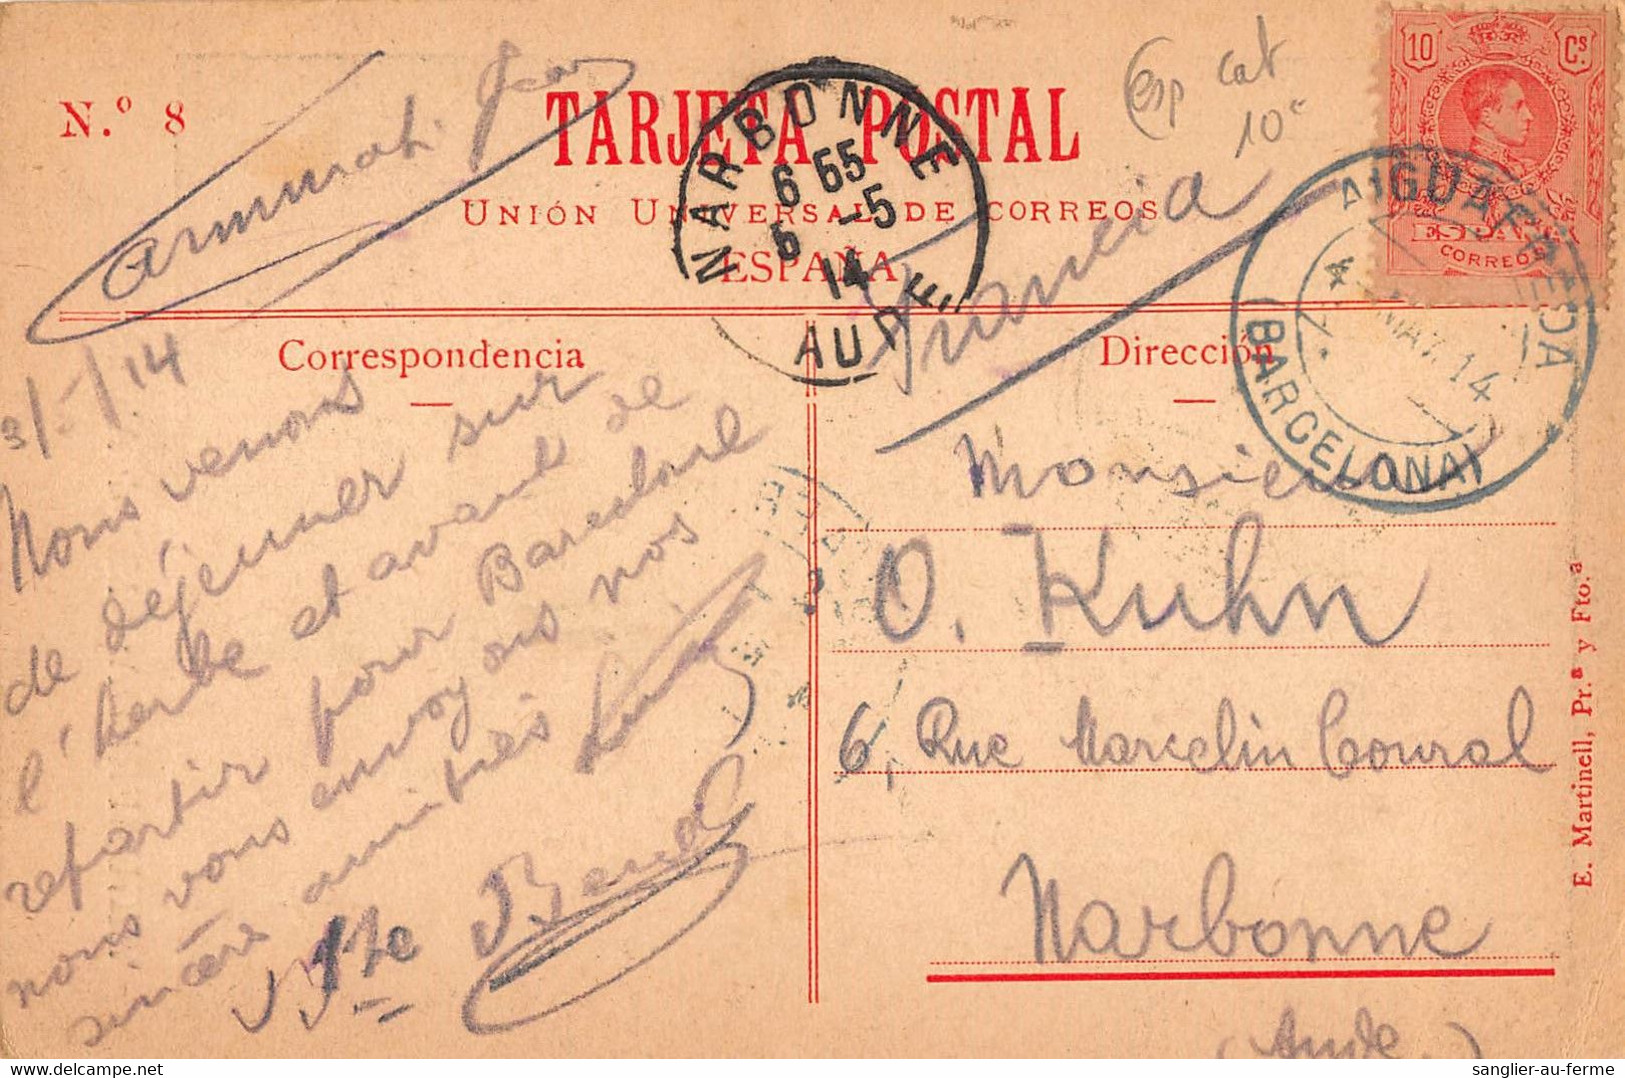 N.º 8
TARJETA POSTAL
UNIÓN UNIVERSAL DE CORREOS
ESPAÑA
Esp cat
10c
10 Cs
ESPAÑA
CORREOS
NARBONNE
6 55
5 -5
14
AUDE
AIGUAFREDA
4 MAY. 14
(BARCELONA)
Francia
Correspondencia
Dirección
3/5/14
Nous venons
de déjeuner sur
l'herbe et avant de
repartir pour Barcelone
nous vous envoyons nos
sincères amitiés
Monsieur
O. Kuhn
6, Rue Marcelin Coural
Narbonne
(Aude)
E. Martinell, Pr.ª y Fto.ª
sanglier-au-ferme.com